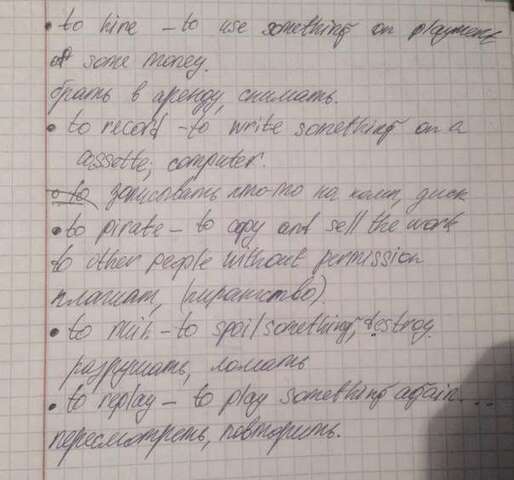 • to hire – to use something on playment
of some money.
брать в аренду, снимать.
• to record – to write something on a
cassette; computer.
записовать что-то на комп, диск
• to pirate – to copy and sell the work
to other people without permission
плагиат, (пиратство).
• to ruin – to spoil something, destroy.
разрушать, ломать
• to replay – to play something again...
пересмотреть, повторить.